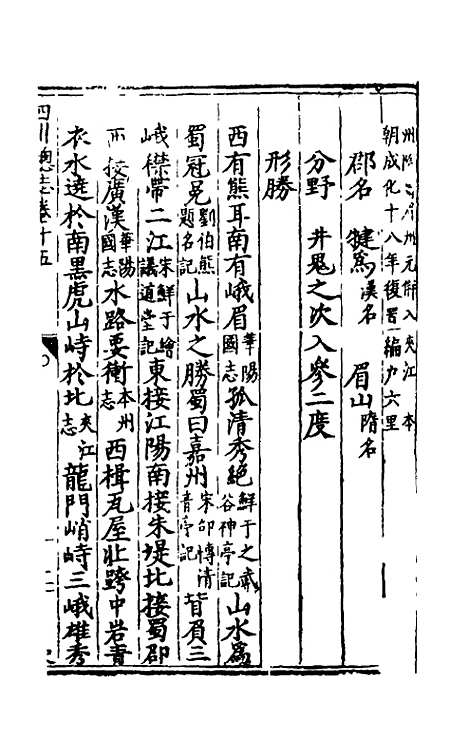 朝成化十八年復置編戶六里
郡名 犍為漢名 眉山隋名
分野 井鬼之次入參二度
形勝
西有熊耳南有峨眉華陽國志孤清秀絕鮮于之武谷神亭記山水為
蜀冠冕劉伯熊題名記山水之勝蜀曰嘉州宋邵博清音亭記背眉三
峨襟帶二江宋鮮于繪議道堂記東接江陽南接朱堤北接蜀郡
西接廣漢華陽國志水路要衝本州志西楫瓦屋北跨中岩青
衣水遶於南黑虎山峙於北夾江志龍門峭峙三峨雄秀
四川總志卷十五